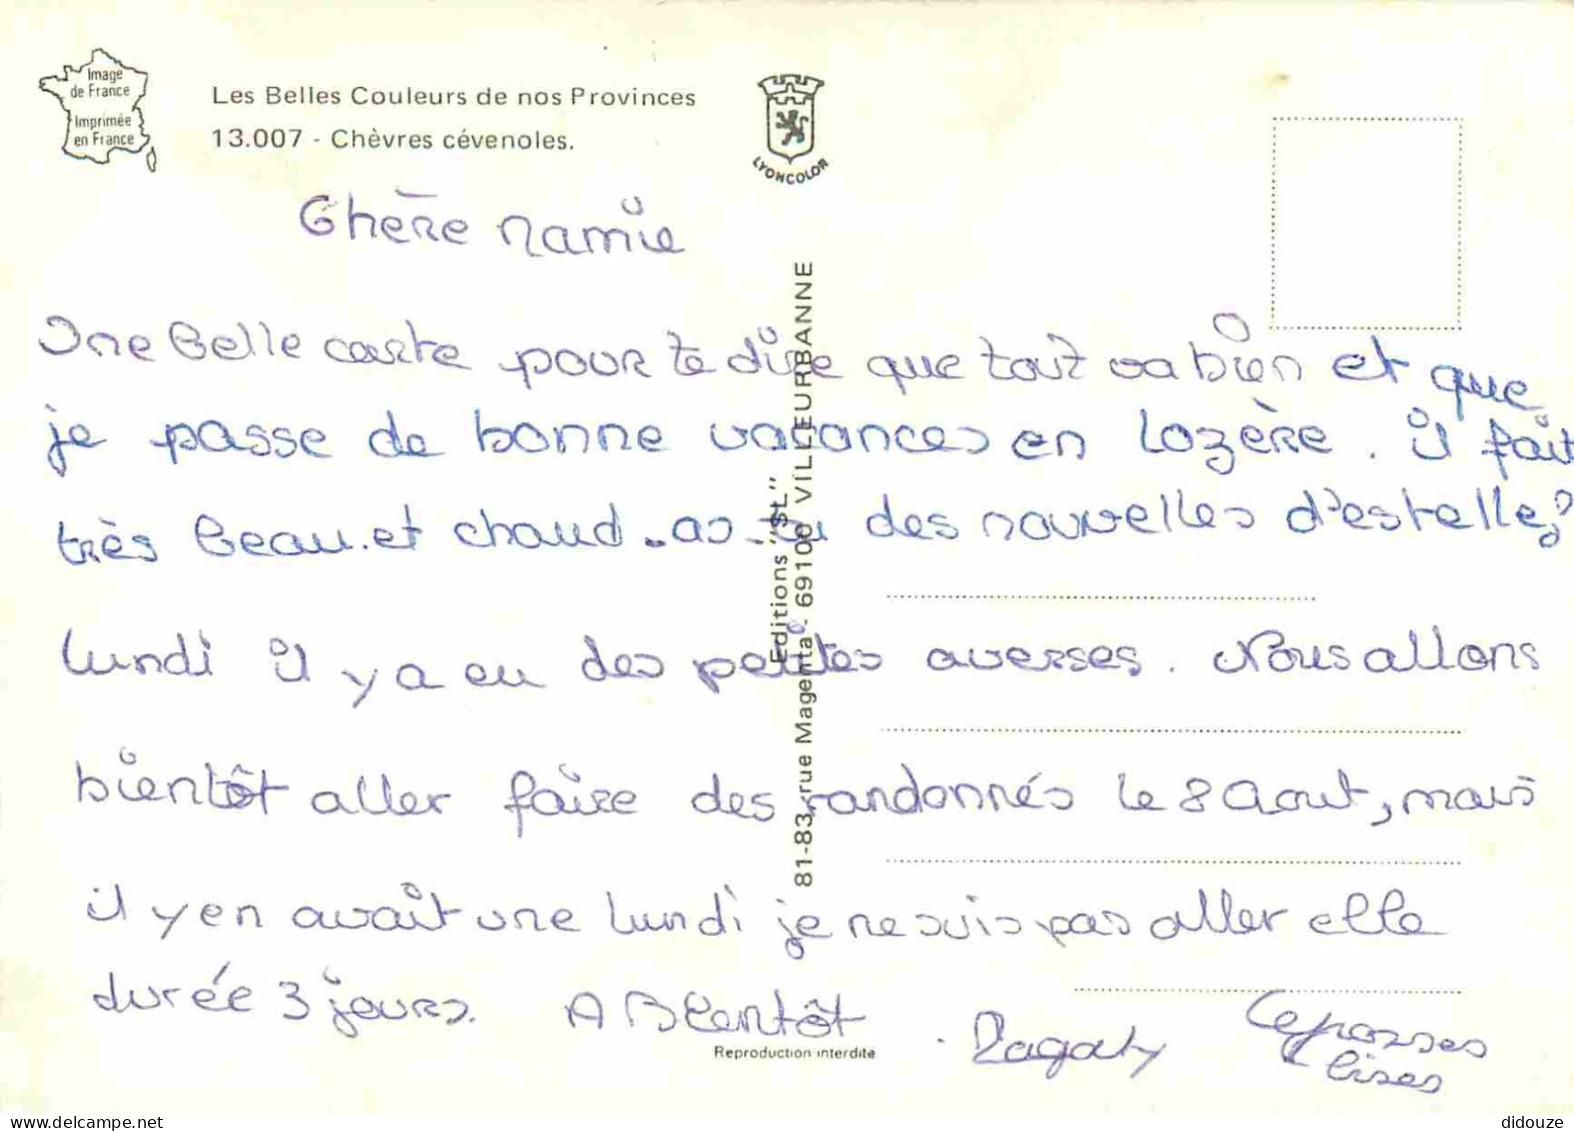 Image
de France
Imprimée
en France
Les Belles Couleurs de nos Provinces
13.007 - Chèvres cévenoles.
LYONCOLOR
Chère mamie
Une belle carte pour te dire que tout va bien et que
je passe de bonne vacances en Lozère. il fait
très beau et chaud. as-tu des nouvelles d'estelle,?
lundi il y a eu des petites averses. Nous allons
bientôt aller faire des randonnés le 8 Aout, mais
il y en avait une lundi je ne suis pas aller elle
durée 3 jours. A Bientôt
Editions "SL"
81-83, rue Magenta - 69100 VILLEURBANNE
Reproduction interdite
didouze